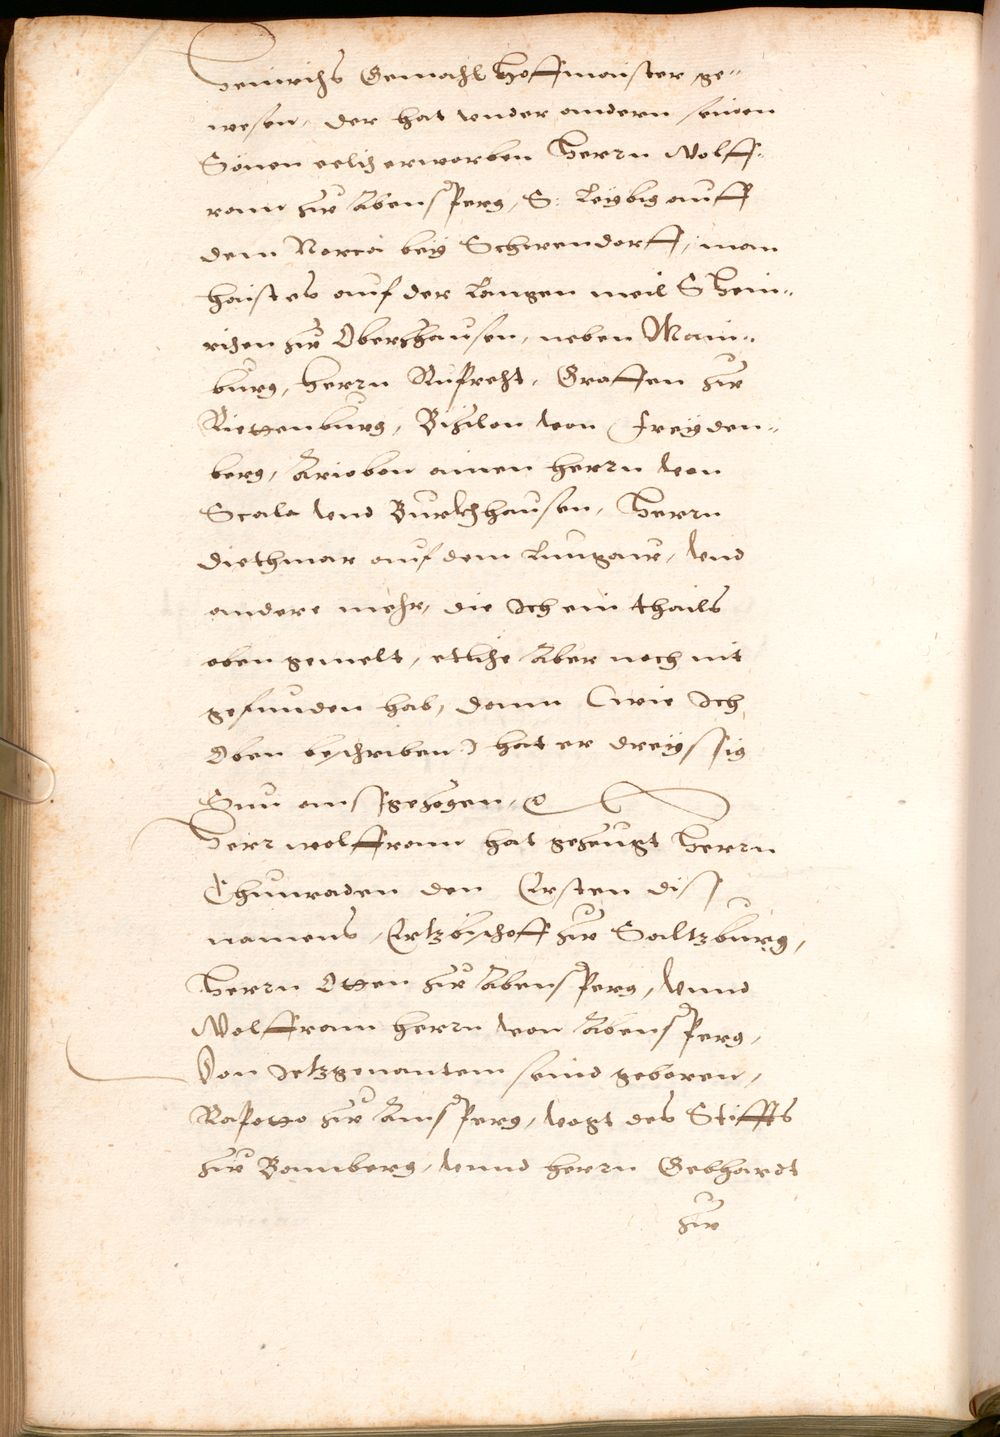 Heinrichs Gemachl Hoffmaister ge„
wesen, der hat under andern seinen
Sönen eelich erworben Herrn Wolff„
ram zur Abenssperg, S: Leybig auff
dem Norca bey Schwendorff, man
haist es auf der Langen meil S Hein„
richen zur Obershausen, neben Main„
burg, Herrn Ruprecht, Graffen zur
Riettenburg, von Freyden„
berg, Ariobon ainen herrn von
Scala vnd Burkhhausen, Herrn
diethmar auf dem Lungaw, vnd
andere mehr, die Ich ein thails
oben gemelt, etliche Aber noch nit
gefunden hab, dann (wie Ich
Oben beschriben) hat er dreyssig
Sün aussgezogen,
Herr wolffram hat gezeugt Herrn
Chunraden den Ersten diss
namens, Ertzbischoff zur Saltzburg,
Herrn Otten zur Abenssperg, vnnd
Wolffram herrn von Abenssperg,
Von Jetzgenantem seind geboren,
Rapotto zur Amssperg, vogt des Stiffts
zur Bamberg, vnnd herrn Gebhardt
zur